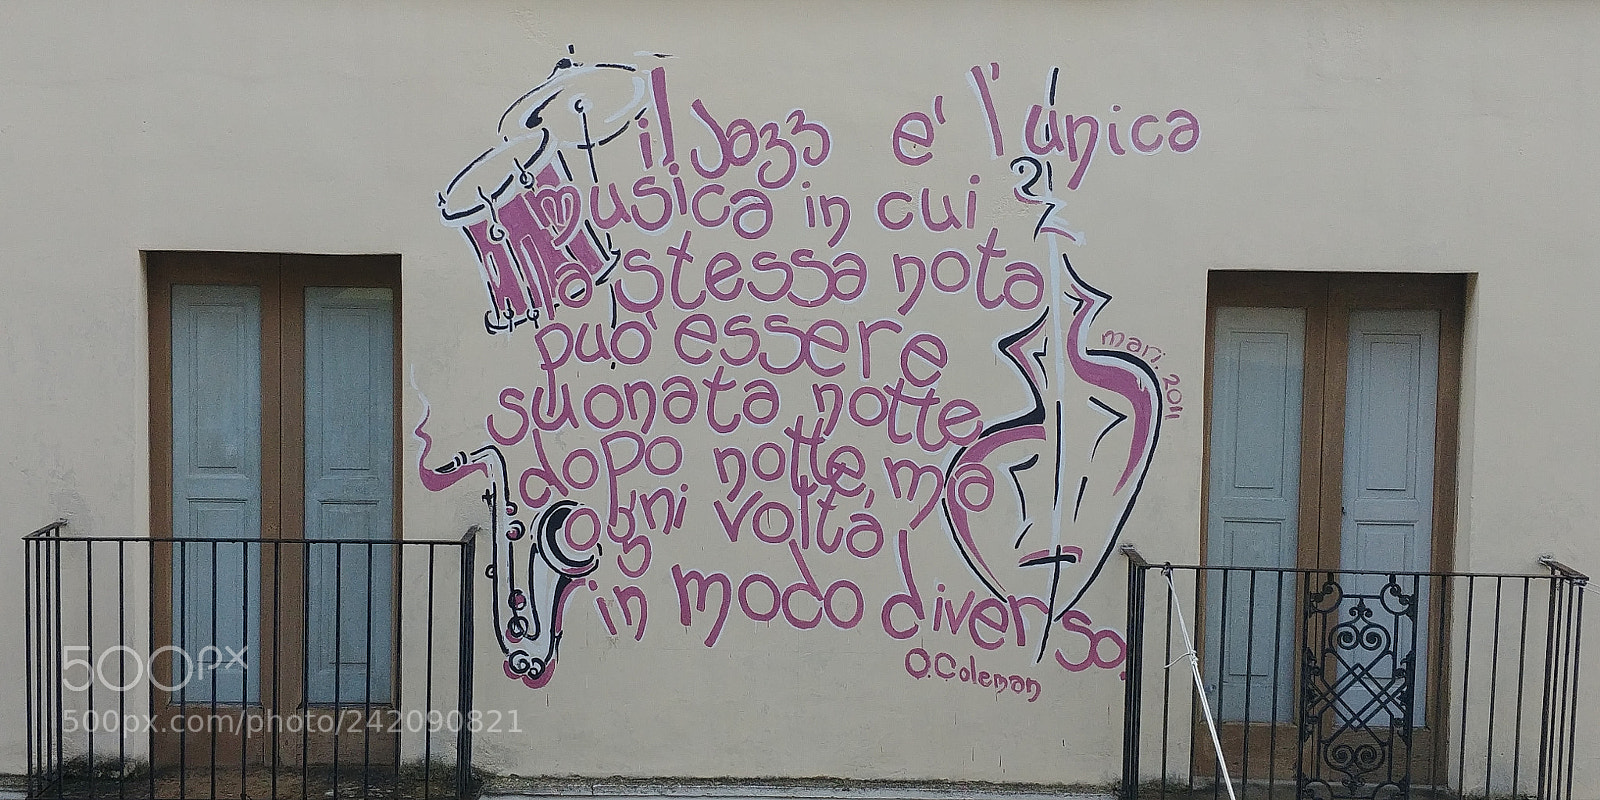 il Jazz e' l'unica
musica in cui
la stessa nota
può essere
suonata notte
dopo notte ma
ogni volta
in modo diverso.
O.Coleman
mari. 2011
500px
500px.com/photo/242090821